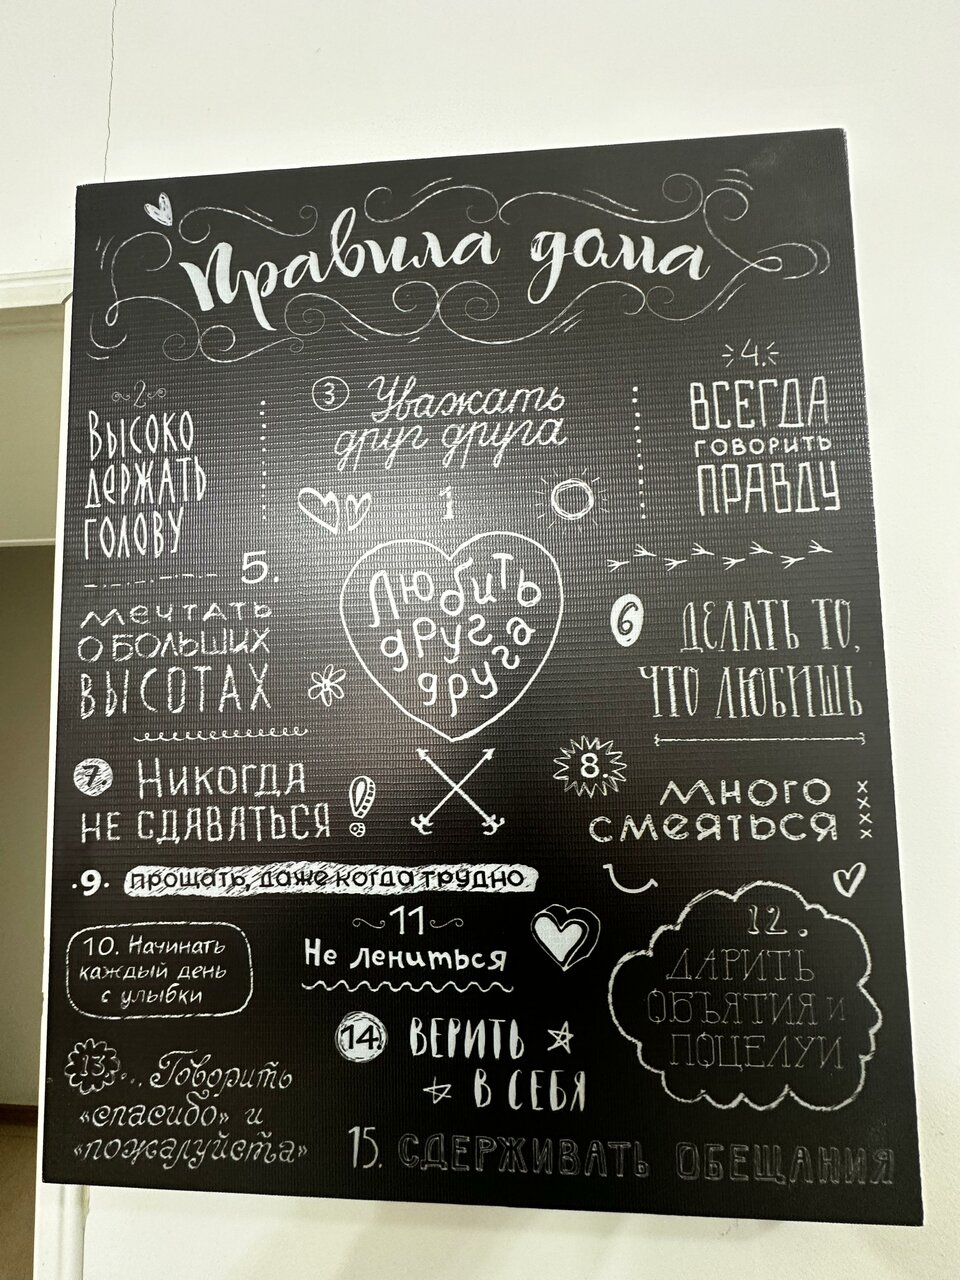 Правила дома
2
Высоко
держать
голову
3 Уважать
друг друга
4.
ВСЕГДА
ГОВОРИТЬ
ПРАВДУ
1
Любить
друг
друга
5.
мечтать
о больших
высотах
6 ДЕЛАТЬ ТО,
ЧТО ЛЮБИШЬ
7. Никогда
не сдаваться!
8.
много
смеяться
xxx
.9. прощать, даже когда трудно
10. Начинать
каждый день
с улыбки
11
Не лениться
12.
ДАРИТЬ
ОБЪЯТИЯ И
ПОЦЕЛУИ
13... Говорить
«спасибо» и
«пожалуйста»
14 ВЕРИТЬ
В СЕБЯ
15. СДЕРЖИВАТЬ ОБЕЩАНИЯ